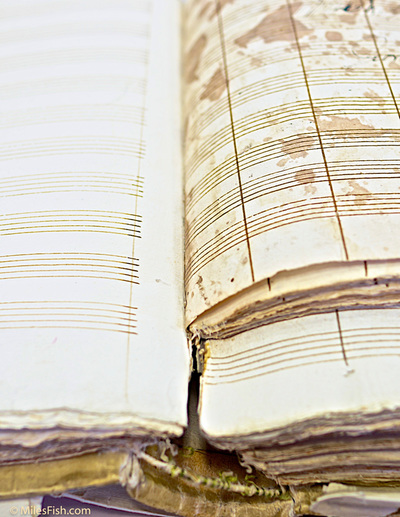 ©MilesFish.com